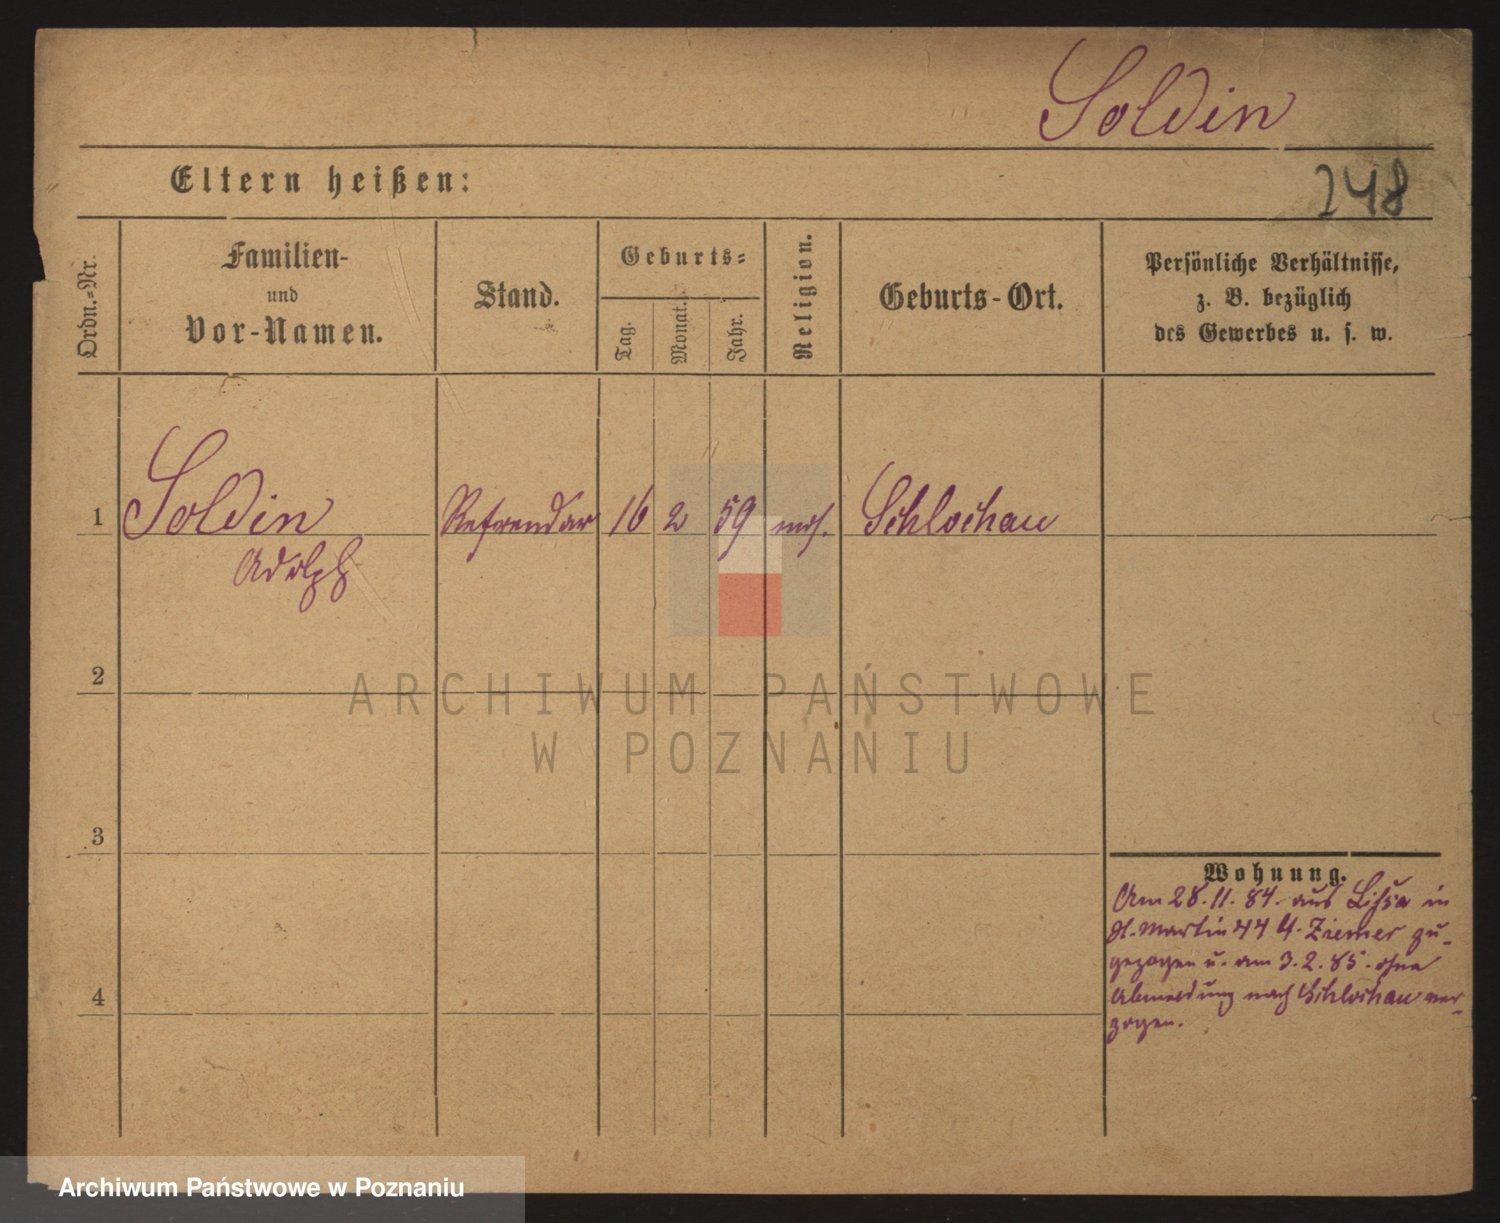 Soldin
Eltern heißen:
248
Ordn.=Nr.
Familien-
und
Vor-Namen.
Stand.
Geburts=
Tag.
Monat.
Jahr.
Religion.
Geburts-Ort.
Persönliche Verhältnisse,
z. B. bezüglich
des Gewerbes u. s. w.
1
Soldin
Adolph
Refrendar
16
2
59
mos.
Schlochau
2
ARCHIWUM PAŃSTWOWE
W POZNANIU
3
Wohnung.
Am 28.11.84. aus Lissa in
St. Martin 44 b. Ziemer zu-
gezogen u. am 3.2.85. ohne
Abmeldung nach Schlochau ver-
zogen.
4
Archiwum Państwowe w Poznaniu